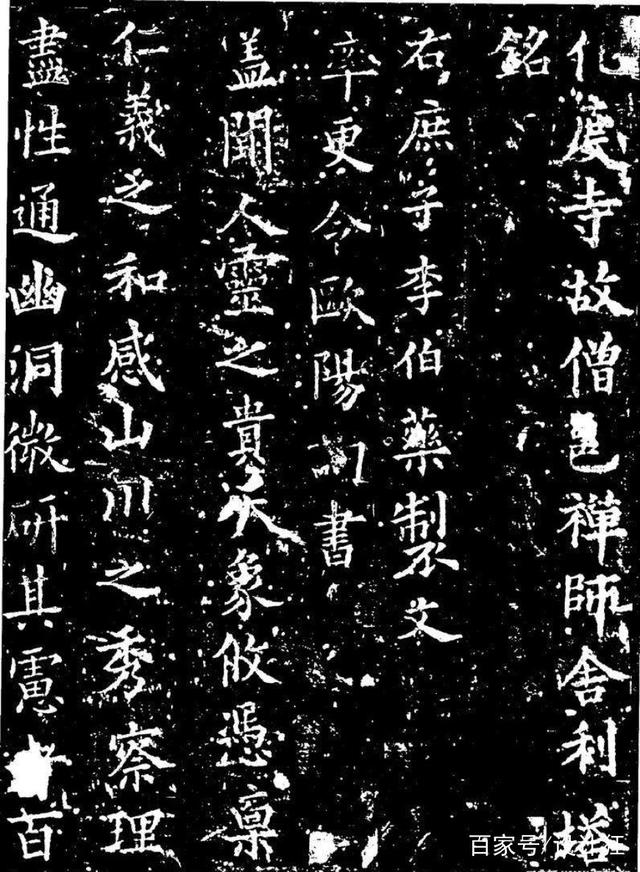 化度寺故僧邕禪師舍利塔
銘
右庶子李伯藥製文
率更令歐陽詢書
盖聞人靈之貴天象攸憑稟
仁義之和感山川之秀察理
盡性通幽洞微研其慮百
百家号/